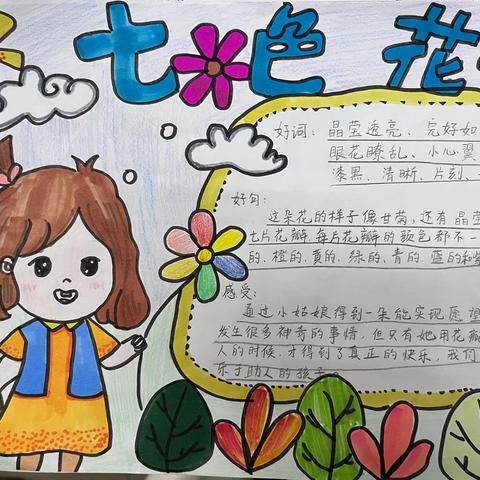 七色花
好词：晶莹透亮、完好如
眼花瞭乱、小心翼
漆黑、清晰、片刻、
好句：
这朵花的样子像甘菊，还有晶莹
七片花瓣，每片花瓣的颜色都不一
的、橙的、黄的、绿的、青的、蓝的和紫
感受：
通过小姑娘得到一朵能实现愿望
发生很多神奇的事情，但只有她用花瓣
人的时候，才得到了真正的快乐，我们
乐于助人的孩子。